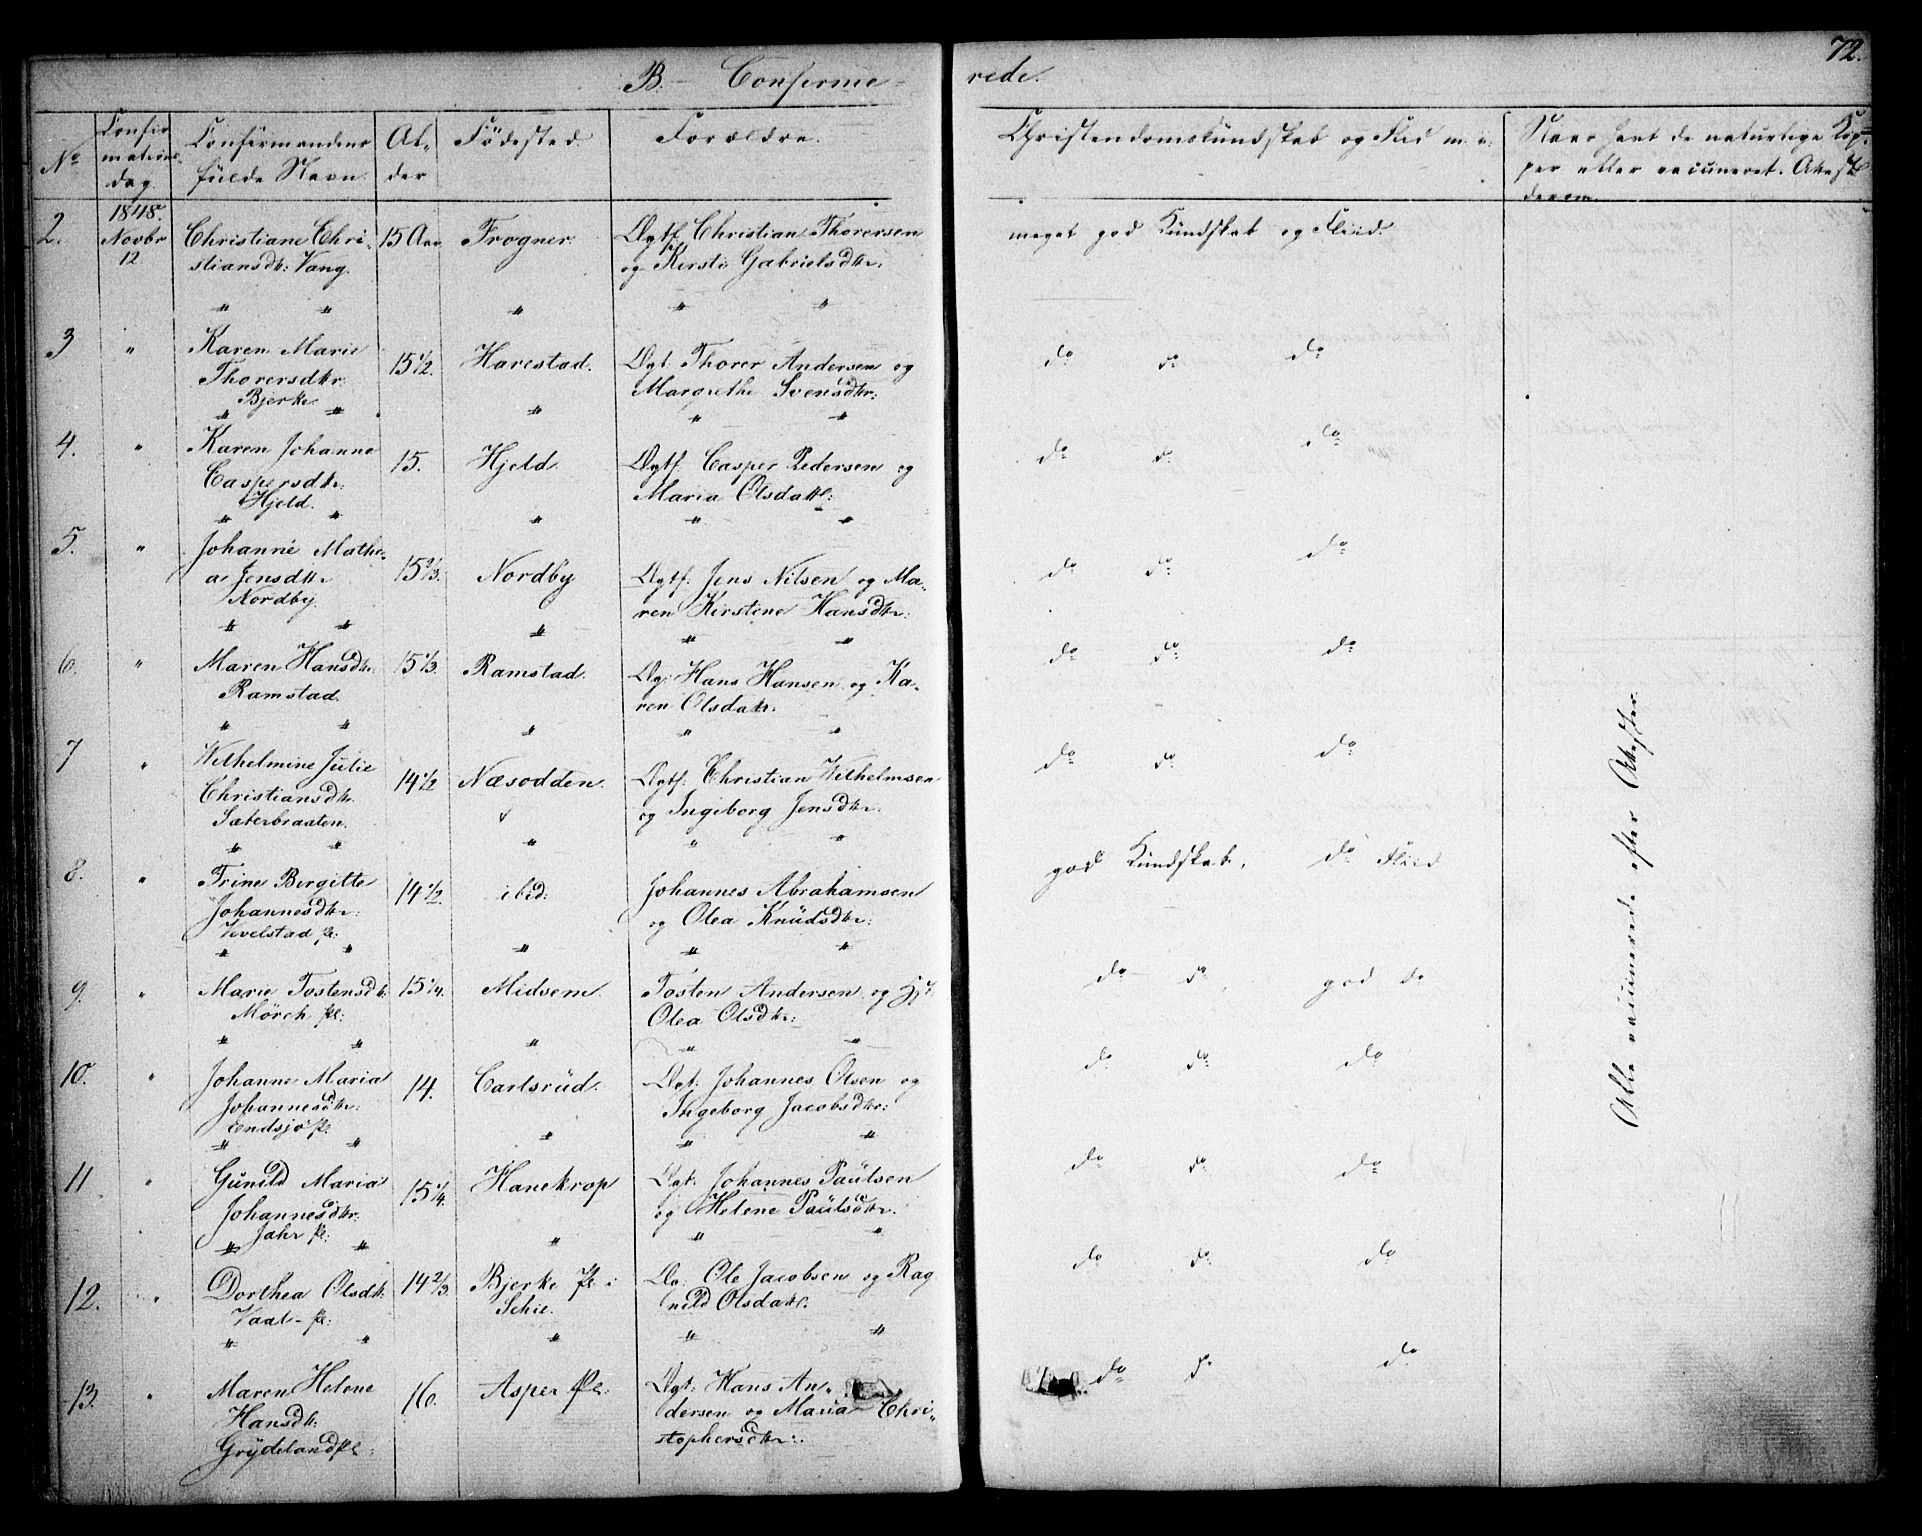 72.
B. Confirme=
rede.
No
Confir
mations-
dag.
Confirmandens
fulde Navn.
Al-
der
Födested.
Forældre.
Christendomskundskab og Flid m. v.
Naar havt de naturlige Kop=
per eller vaccineret. Attest
derom.
1848.
2. Novbr 12
Christiane Chri-
stiansdtr: Vang.
15 Aar
Frogner.
Dgtf. Christian Thorersen
og Kirsti Gabrielsdtr:
meget god Kundskab og Fliid.
" " " " "
3 "
Karen Marie
Thorersdtr:
Bjerke.
15 1/2.
Harestad.
Dgt. Thorer Andersen og
Margrethe Svensdtr:
do do do
" " " " "
4. "
Karen Johanne
Caspersdtr:
Hjeld.
15.
Hjeld
Dgtf. Casper Pedersen og
Maria Olsdatt:
do do do
" " " " "
5. "
Johanne Mathe-
a Jensdtr
Nordby.
15 2/3.
Nordby
Dgtf. Jens Nilsen og Ma-
ren Kirstine Hansdtr:
do do do
" " " " "
6. "
Maren Hansdtr.
Ramstad.
15 1/3.
Ramstad.
Dg: Hans Hansen og Ka-
ren Olsdatr.
do do do
" " " " "
7 "
Wilhelmine Julie
Christiansdtr.
Sæterbraaten.
14 1/2
Næsodden.
Dgtf. Christian Wilhelmsen
og Ingeborg Jensdtr:
do do do
" " " " "
8. "
Trine Birgitte
Johannesdtr:
Vevelstad pl:
14 1/2.
ibid:
Johannes Abrahamsen
og Olea Knudsdtr:
god Kundskab, do Fliid
" " " " "
9. "
Marie Tostensdtr:
Mörch pl:
15 1/4.
Midsem.
Tosten Andersen og
Olea Olsdtr:
do do god do
" " " " "
10. "
Johanne Maria
Johannesdtr:
Endsjö pl:
14.
Carlsrud.
Dgt: Johannes Olsen og
Ingeborg Jacobsdtr:
do do do
" " " " "
11 "
Gunild Maria
Johannesdtr:
Jahr pl:
15 1/4.
Hanekrop
Dgt: Johannes Paulsen
og Helene Paulsdtr.
do do do
" " " " "
12. "
Dorthea Olsdtr:
Vaal- pl:
14 2/3.
Bjerke pl: i
Schie.
Dg: Ole Jacobsen og Rag
nild Olsdatt.
do do do
" " " " "
13. "
Maren Helene
Hansdtr:
Grydeland pl:
16.
Asper pl:
Dgt: Hans An-
dersen og Maria Chri-
stophersdtr:
do do do
Alle vaccinerede efter Attester.